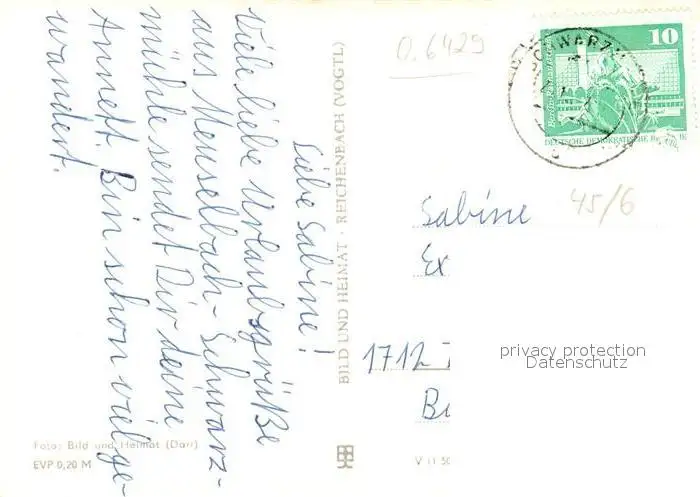 Liebe Sabine!
Viele liebe Urlaubsgrüße
aus Meuselbach-Schwarz-
mühle sendet Dir deine
Annett. Bin schon viel ge-
wandert.
BILD UND HEIMAT · REICHENBACH (VOGTL)
0.6429
SCHWARZ
10
DEUTSCHE DEMOKRATISCHE
45/6
Sabine
Ex
1712
privacy protection
Datenschutz
Foto: Bild und Heimat (Darr)
EVP 0,20 M
V 11 50